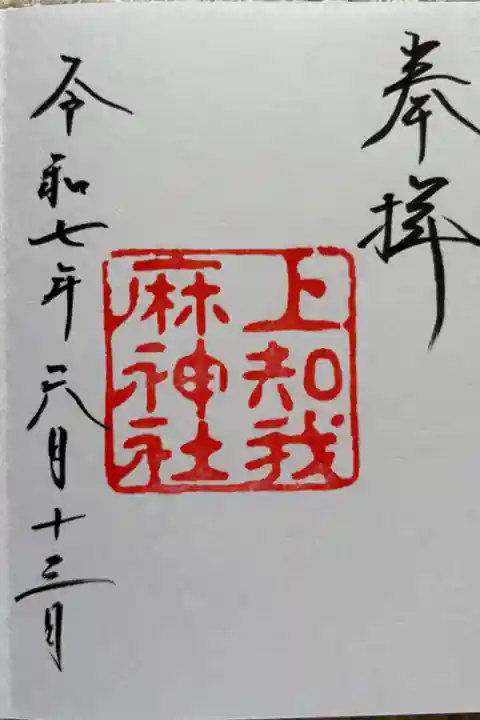 奉拝
上知我
麻神社
令和七年六月十三日